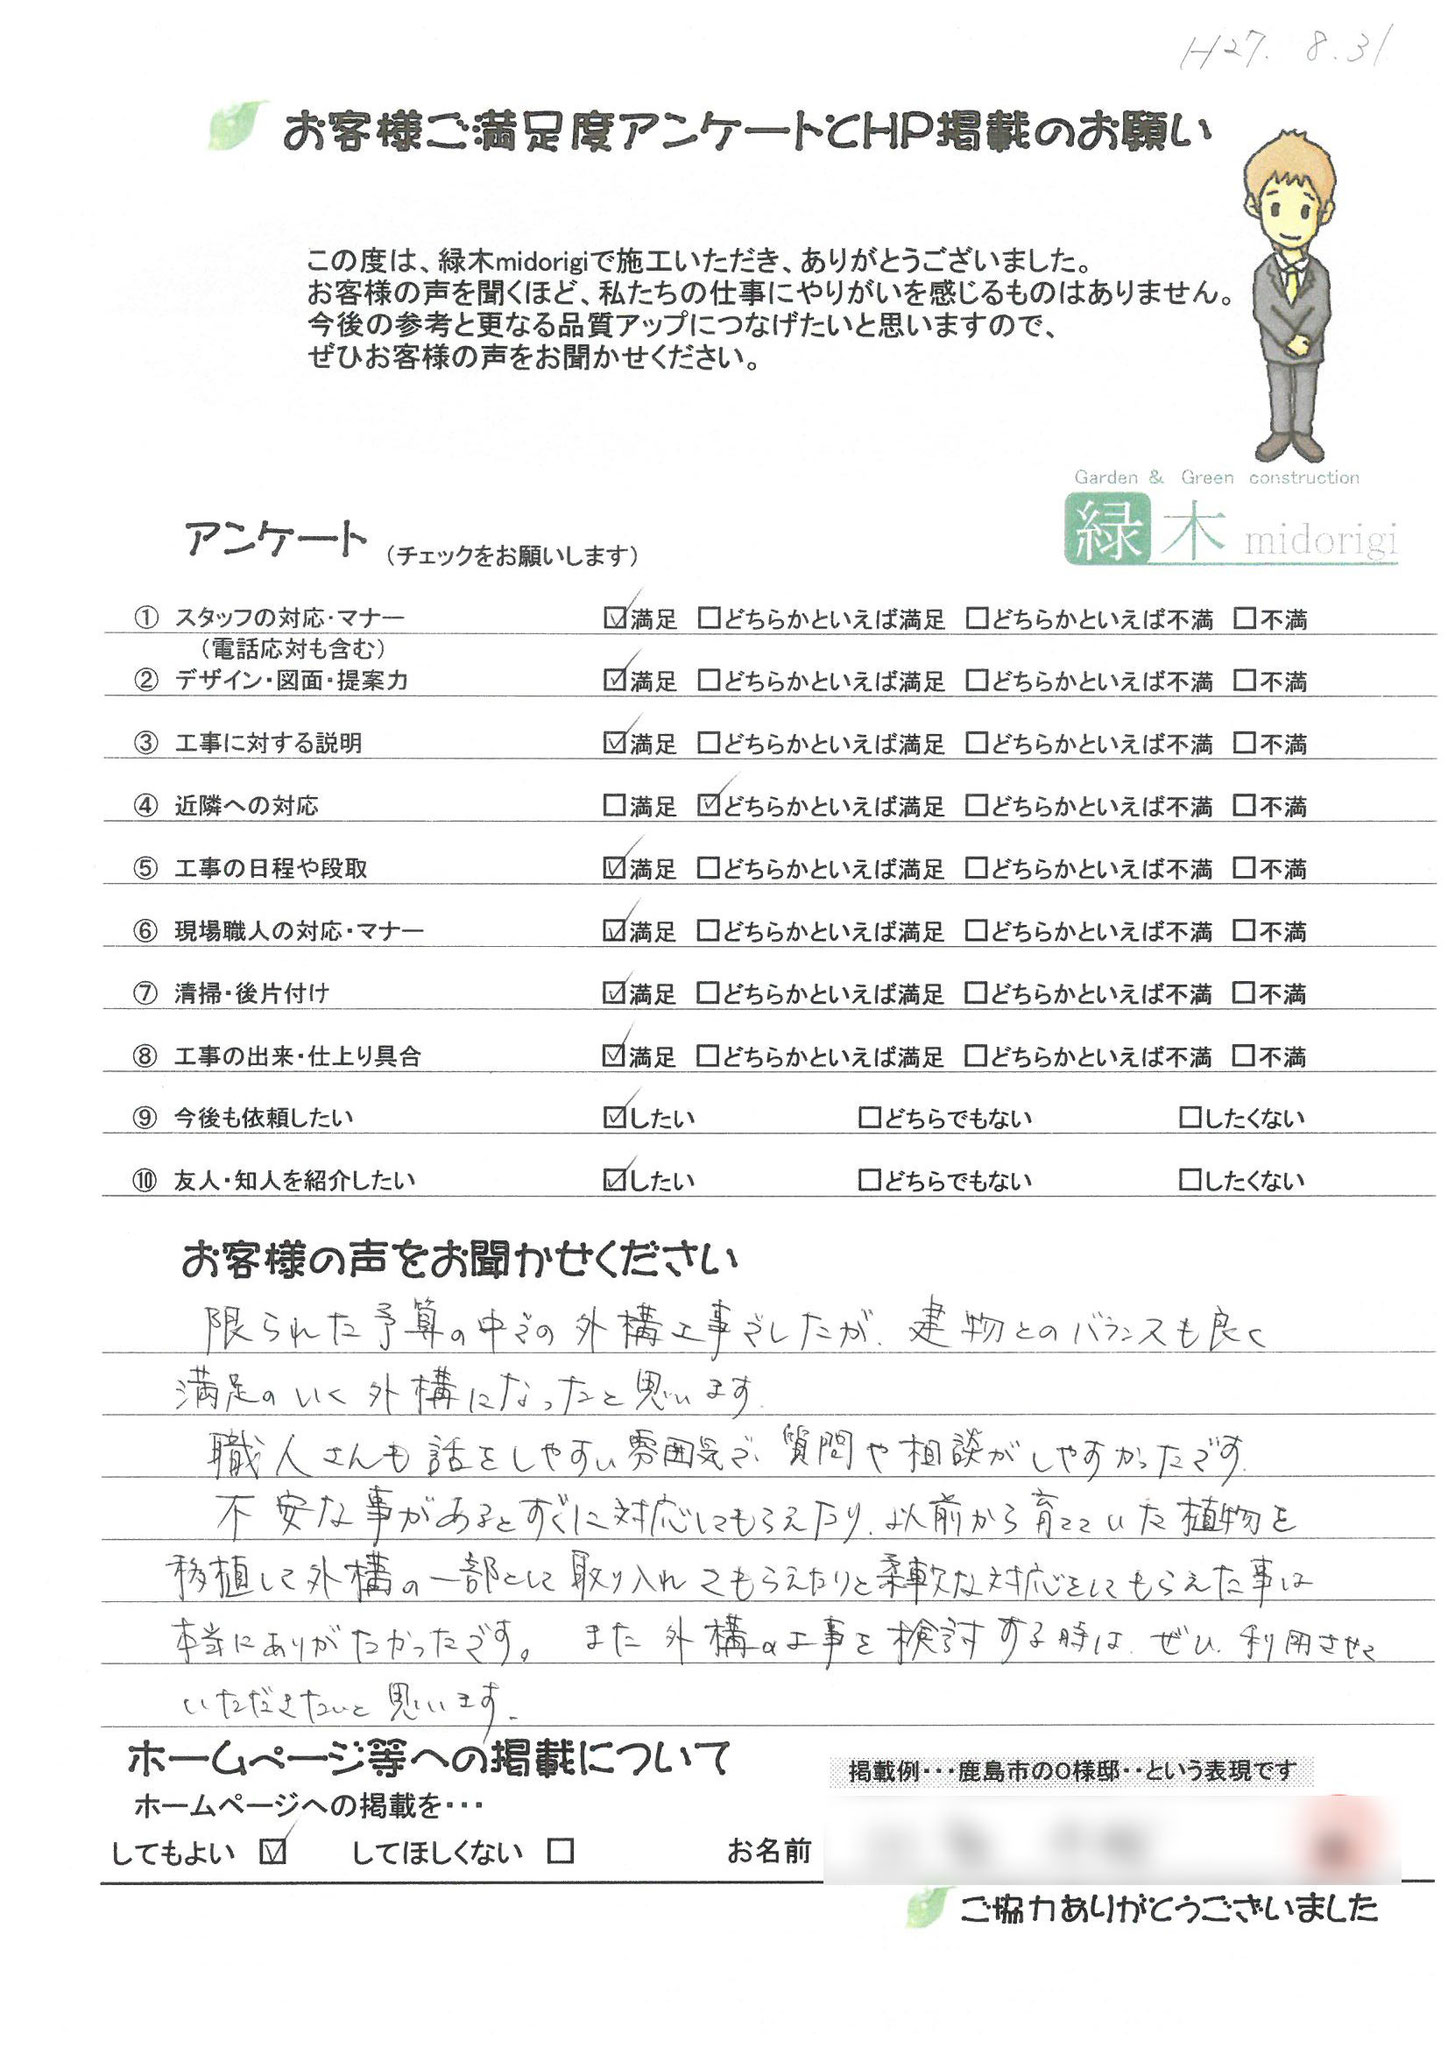 H27. 8.31
お客様ご満足度アンケートとHP掲載のお願い
この度は、緑木midorigiで施工いただき、ありがとうございました。
お客様の声を聞くほど、私たちの仕事にやりがいを感じるものはありません。
今後の参考と更なる品質アップにつなげたいと思いますので、
ぜひお客様の声をお聞かせください。
Garden & Green construction
緑木 midorigi
アンケート （チェックをお願いします）
① スタッフの対応・マナー ☑満足 □どちらかといえば満足 □どちらかといえば不満 □不満
（電話応対も含む）
② デザイン・図面・提案力 ☑満足 □どちらかといえば満足 □どちらかといえば不満 □不満
③ 工事に対する説明 ☑満足 □どちらかといえば満足 □どちらかといえば不満 □不満
④ 近隣への対応 □満足 ☑どちらかといえば満足 □どちらかといえば不満 □不満
⑤ 工事の日程や段取 ☑満足 □どちらかといえば満足 □どちらかといえば不満 □不満
⑥ 現場職人の対応・マナー ☑満足 □どちらかといえば満足 □どちらかといえば不満 □不満
⑦ 清掃・後片付け ☑満足 □どちらかといえば満足 □どちらかといえば不満 □不満
⑧ 工事の出来・仕上り具合 ☑満足 □どちらかといえば満足 □どちらかといえば不満 □不満
⑨ 今後も依頼したい ☑したい □どちらでもない □したくない
⑩ 友人・知人を紹介したい ☑したい □どちらでもない □したくない
お客様の声をお聞かせください
限られた予算の中での外構工事でしたが、建物とのバランスも良く
満足のいく外構になったと思います。
職人さんも話をしやすい雰囲気で、質問や相談がしやすかったです。
不安な事があるとすぐに対応してもらえたり、以前から育てていた植物を
移植して外構の一部として取り入れてもらえたりと柔軟な対応をしてもらえた事は
本当にありがたかったです。また外構の工事を検討する時は、ぜひ利用させて
いただきたいと思います。
ホームページ等への掲載について
掲載例・・・鹿島市のO様邸・・という表現です
ホームページへの掲載を・・・
してもよい ☑ してほしくない □ お名前
ご協力ありがとうございました